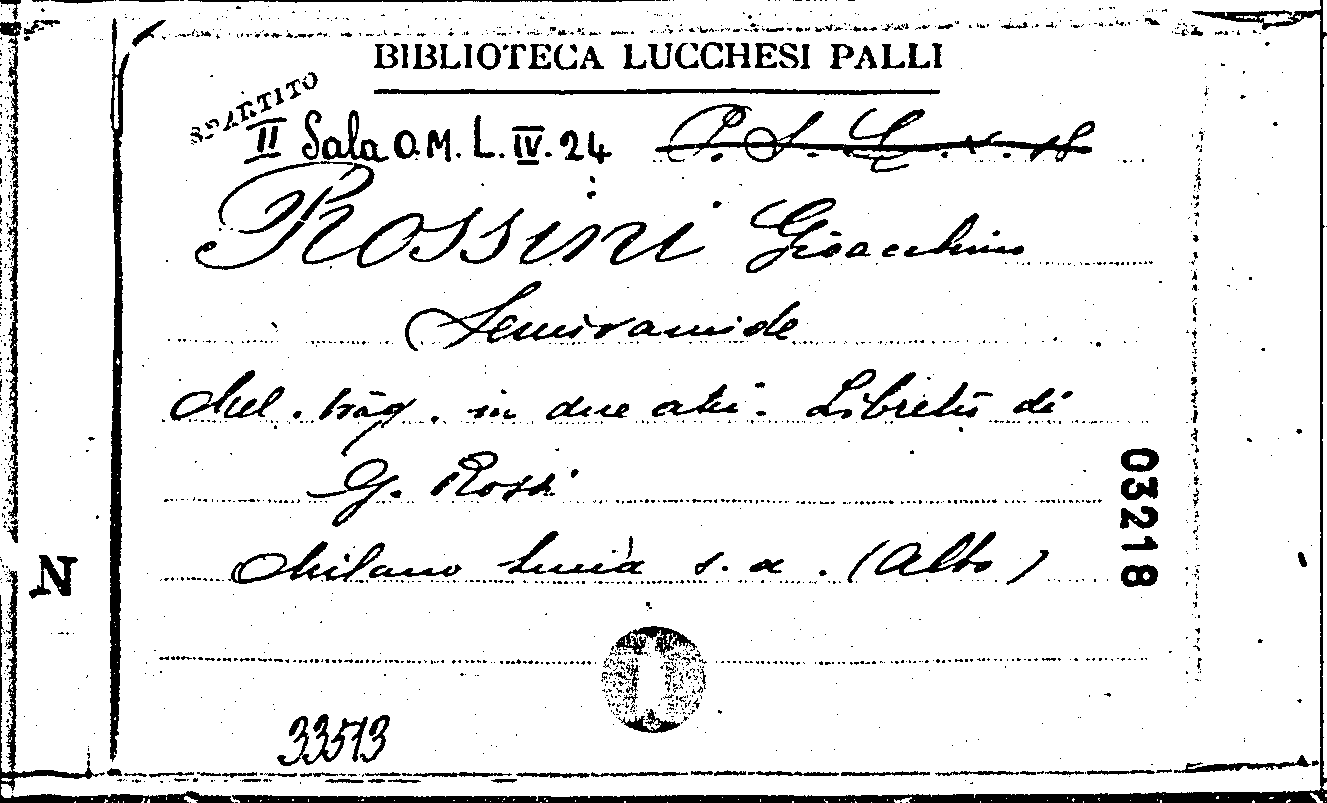 BIBLIOTECA LUCCHESI PALLI
SPARTITO
II Sala O.M. L. IV. 24 P. S. L. X. 18
ROSSINI Gioacchino
Semiramide
Mel. trag. in due atti. Libretto di
G. Rossi
Milano Lucca s. a. (Albo)
03218
N
33513